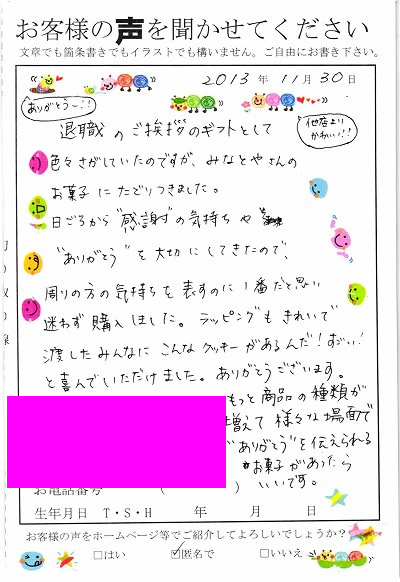 お客様の声を聞かせてください
文章でも箇条書きでもイラストでも構いません。ご自由にお書き下さい。
2013年 11月 30日
ありがとう〜!!
他店より
かわいい!!
退職のご挨拶のギフトとして
色々さがしていたのですが、みなとやさんの
お菓子にたどりつきました。
日ごろから"感謝"の気持ちや
"ありがとう"を大切にしてきたので、
周りの方の気持ちを表すのに1番だと思い
迷わず購入しました。ラッピングもきれいで
渡したみんなにこんなクッキーがあるんだ!すごい!
と喜んでいただけました。ありがとうございます。
もっと商品の種類が
増えて様々な場面で
"ありがとう"を伝えられる
お菓子があったら
いいです。
お電話番号 ( )
生年月日 T・S・H 年 月 日
お客様の声をホームページ等でご紹介してよろしいでしょうか?
□はい ☑匿名で □いいえ